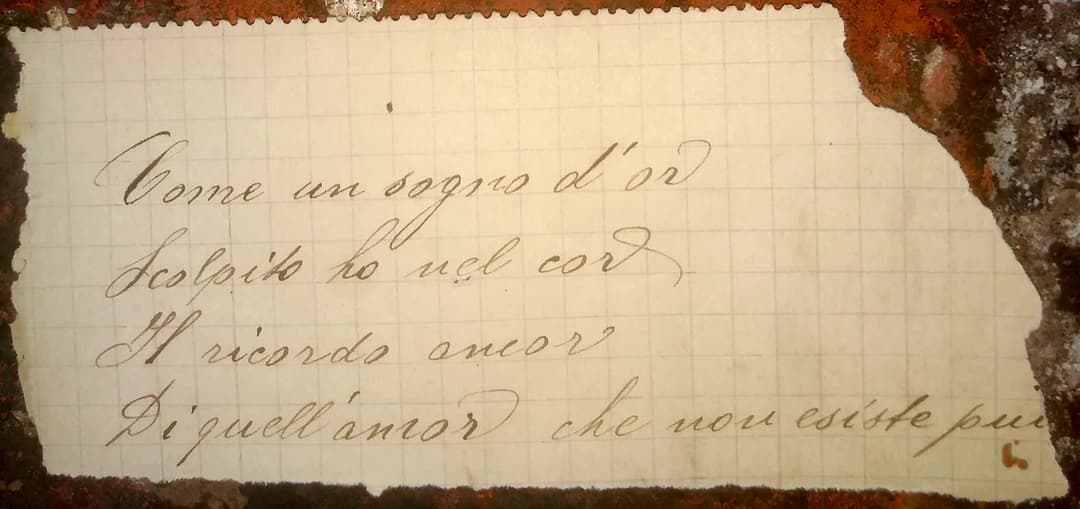 Come un sogno d'or
Scolpito ho nel cor
Il ricordo ancor
Di quell'amor che non esiste pui